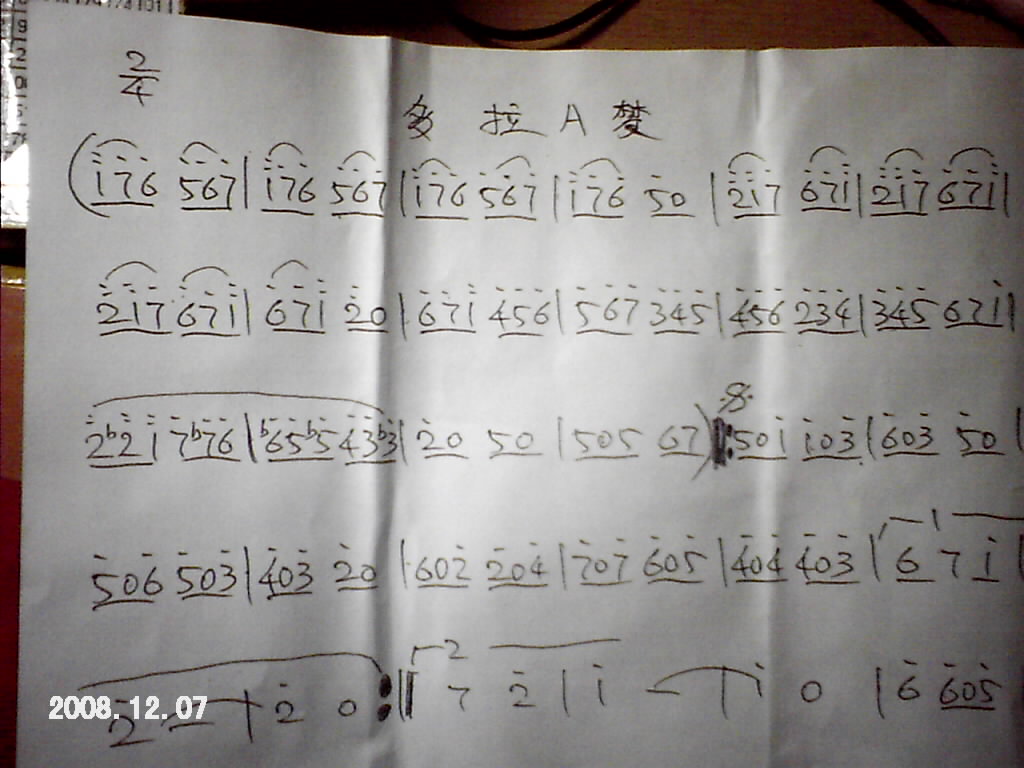 2/4
多拉A梦
(i76 567|i76 567|i76 567|i76 50|2i7 67i|2i7 67i|
2i7 67i|67i 20|67i 456|567 345|456 234|345 67i|
2b2i 7b76|b65b5 43b3|20 50|505 67)𝄋‖:50i i03|603 50|
506 503|403 20|602 204|707 605|404 403|1 6 7 i
2 - |2 0:‖2 7 2|i - |i 0|6 605
2008.12.07